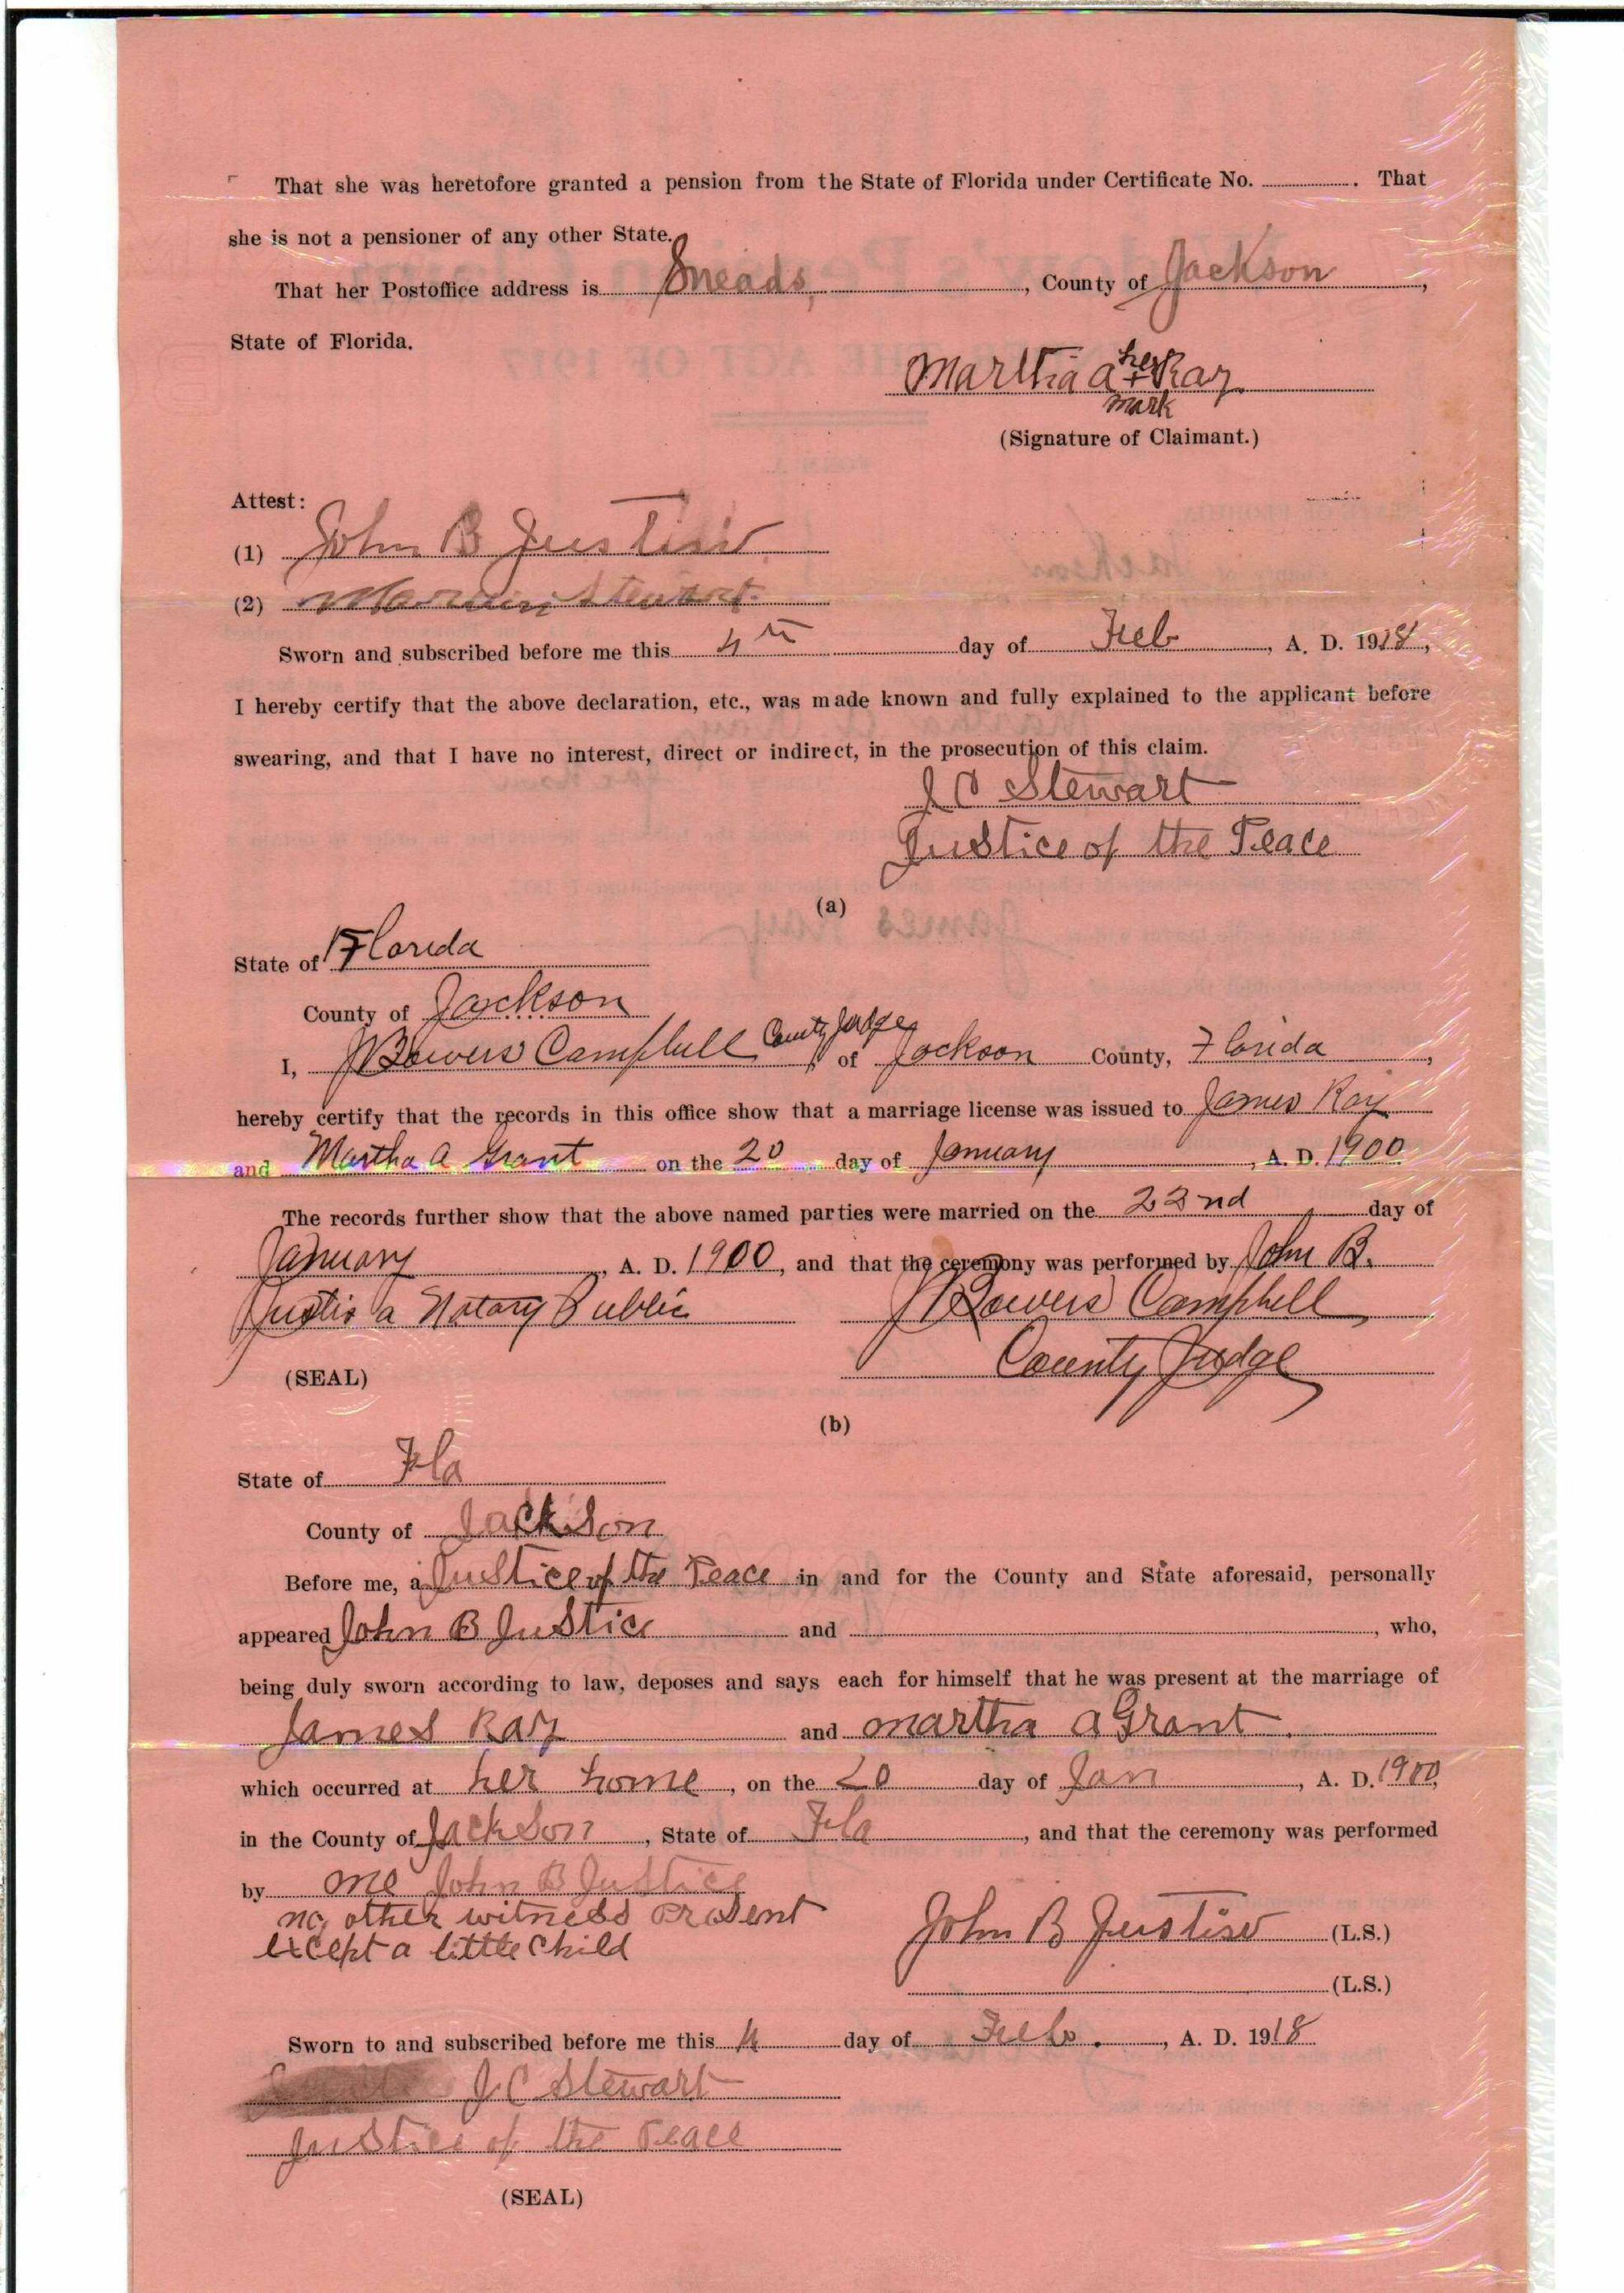 That she was heretofore granted a pension from the State of Florida under Certificate No. ............ . That
she is not a pensioner of any other State.
That her Postoffice address is Sneads, , County of Jackson ,
State of Florida.
her
Martha a + Ray
mark
(Signature of Claimant.)
Attest:
(1) John B Justiss
(2) Stewart
Sworn and subscribed before me this 4th day of Feb , A. D. 1918,
I hereby certify that the above declaration, etc., was made known and fully explained to the applicant before
swearing, and that I have no interest, direct or indirect, in the prosecution of this claim.
J C Stewart
Justice of the Peace
(a)
State of Florida
County of Jackson
I, J Bowers Campbell County Judge of Jackson County, Florida ,
hereby certify that the records in this office show that a marriage license was issued to James Ray
and Martha A Grant on the 20 day of January , A. D. 1900
The records further show that the above named parties were married on the 22nd day of
January , A. D. 1900, and that the ceremony was performed by John B.
Justis a Notary Public J Bowers Campbell
County Judge
(SEAL)
(b)
State of Fla
County of Jackson
Before me, a Justice of the Peace in and for the County and State aforesaid, personally
appeared John B Justice and , who,
being duly sworn according to law, deposes and says each for himself that he was present at the marriage of
James Ray and martha a Grant
which occurred at her home , on the 20 day of Jan , A. D. 1900
in the County of Jackson , State of Fla , and that the ceremony was performed
by me John B Justice
no other witness present
except a little child
John B Justiss (L.S.)
(L.S.)
Sworn to and subscribed before me this 4 day of Feb. , A. D. 1918
J. C Stewart
Justice of the Peace
(SEAL)